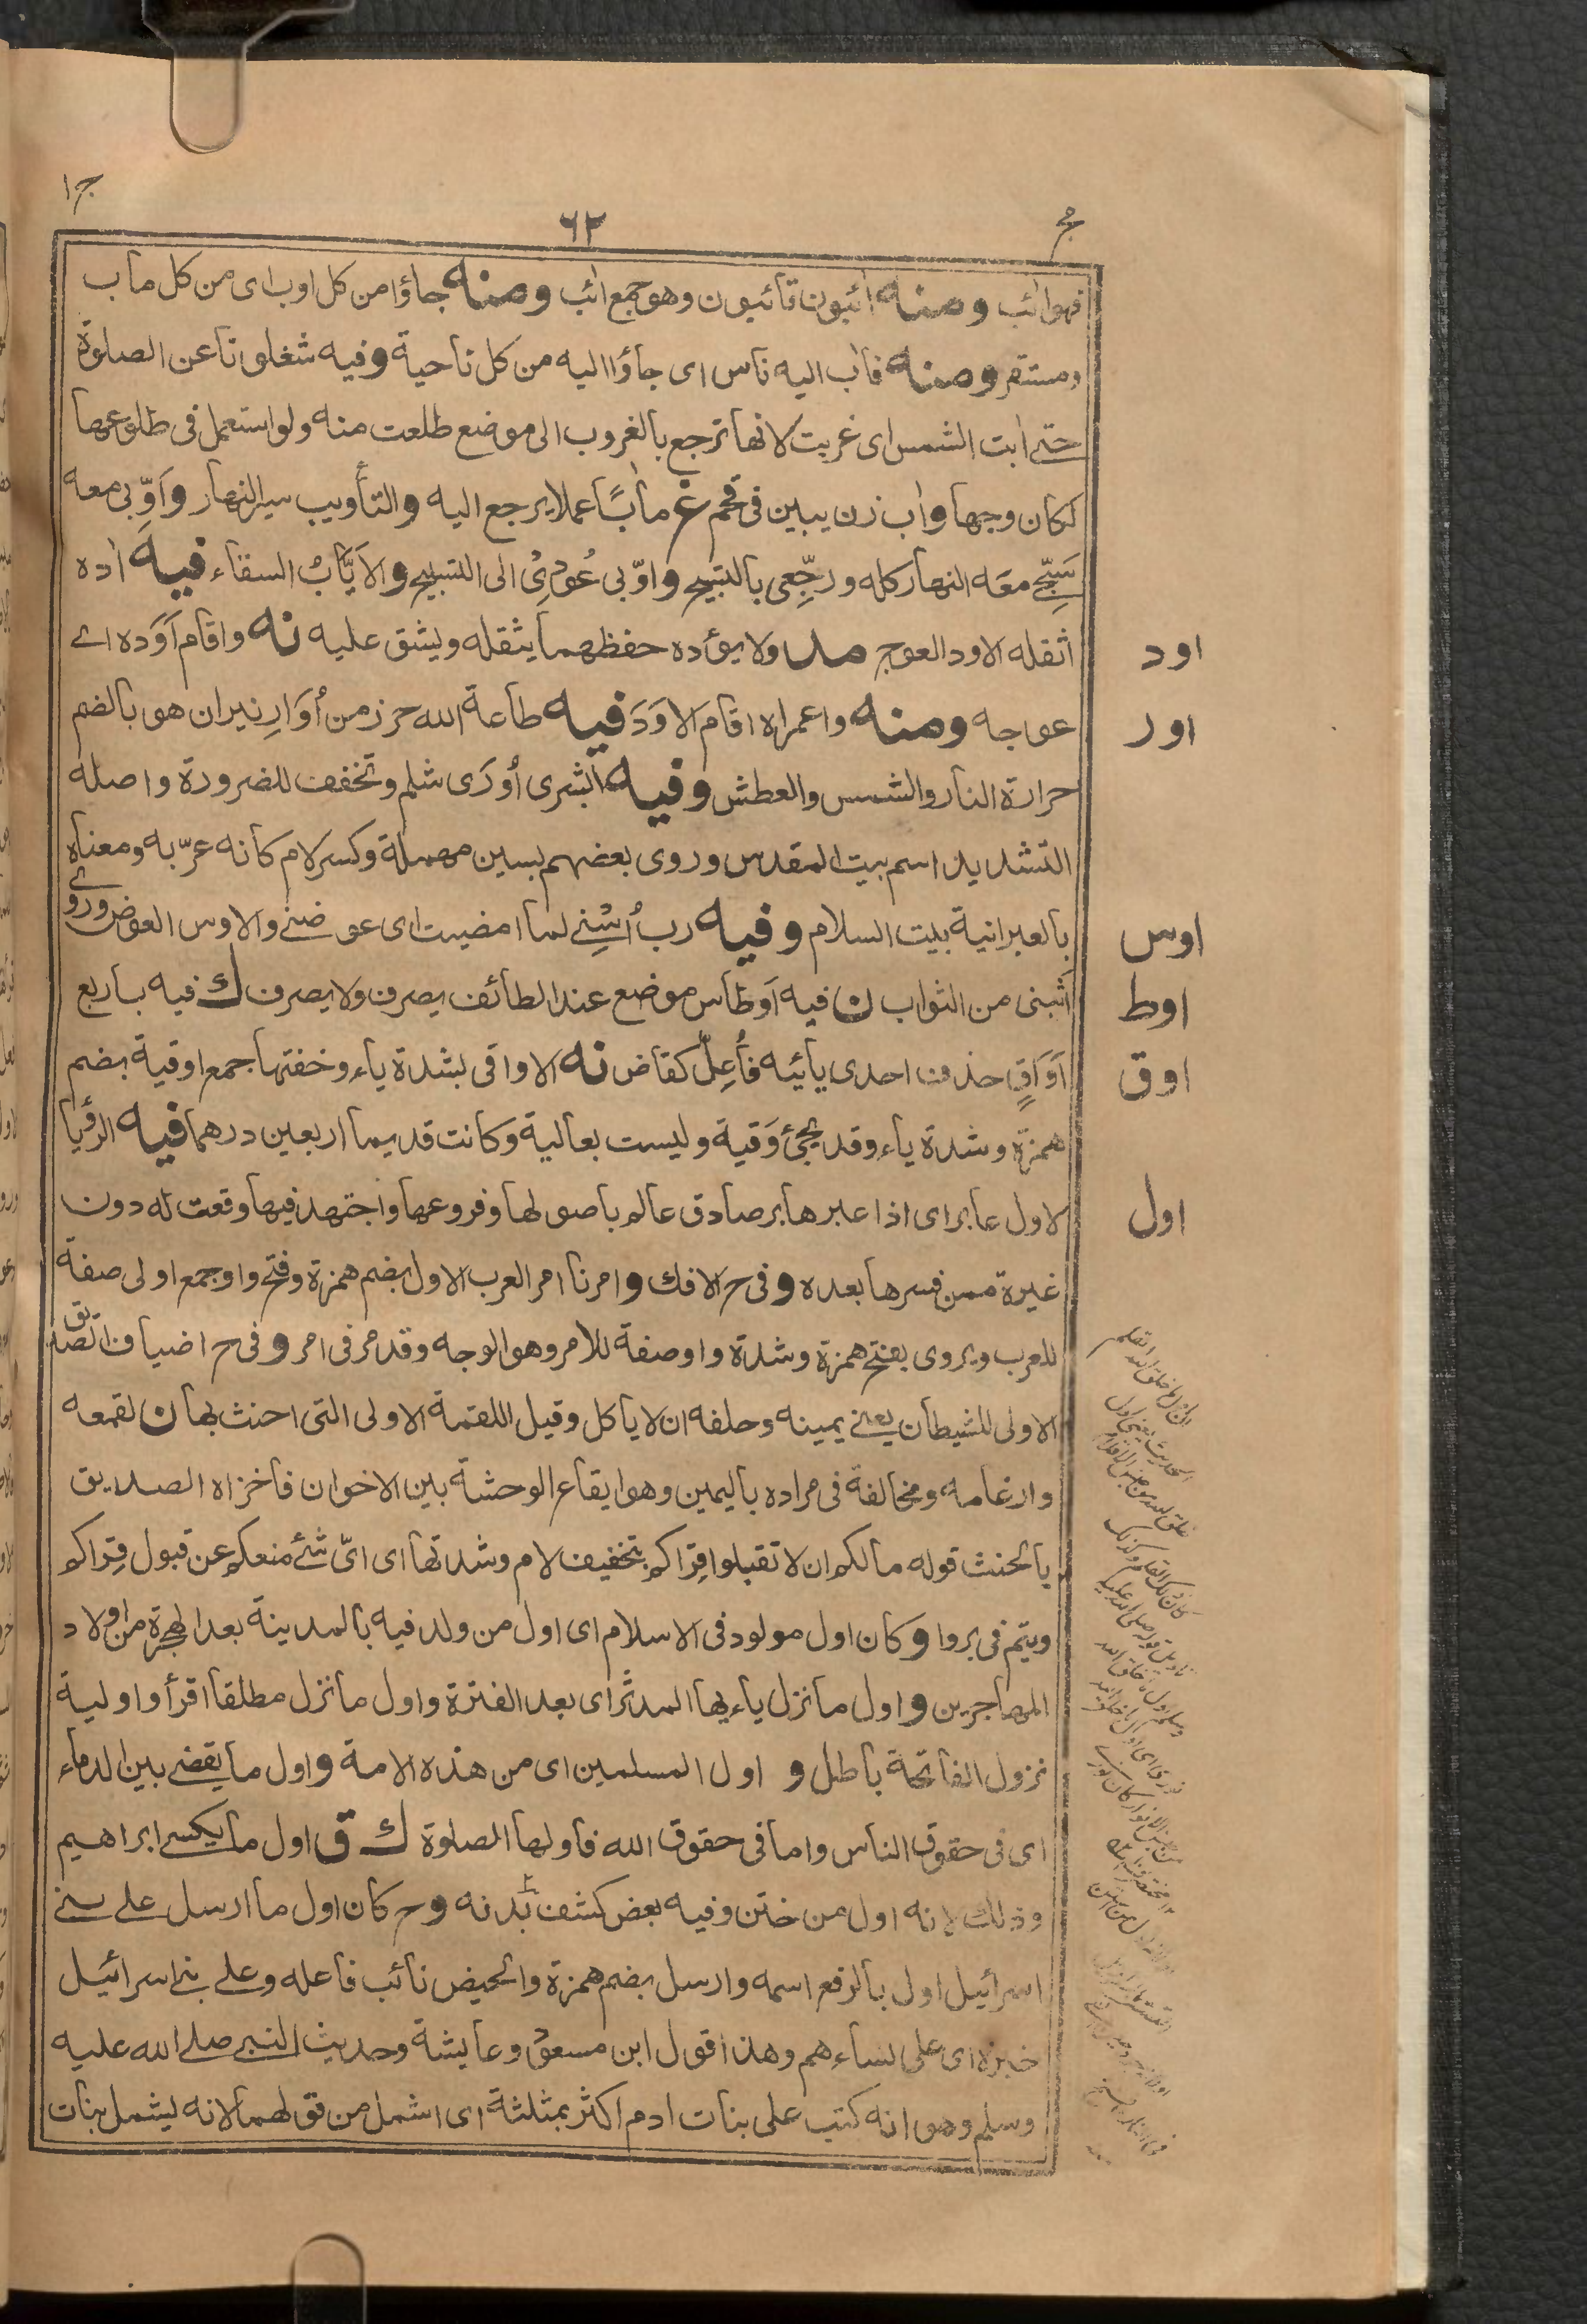 ج ١
٦٢
مج
فهو ائب ومنه ائبون تائبون وهو جمع ائب ومنه جاؤا من كل اوب اى من كل ماب
ومستقر ومنه فاٰب اليه ناس اى جاؤا اليه من كل ناحية وفيه شغلونا عن الصلوة
حتے ابت الشمس اى غربت لانها ترجع بالغروب الى موضع طلعت منه ولو استعمل فى طلوعها
لكان وجها واٰب زن يبين فى قحم غ ماٰبًا عملا يرجع اليه والتأويب سير النهار وَاَوِّبى معه
سَبِّحے معَه النهار كله ورجِّعى بالتبيح واوّبى عُودِىْ الى التسبيح والاَيَّابُ السقاء فيه اٰده
اثقله الاود العوج مد ولا يؤده حفظهما يثقله ويشق عليه نه واقام اَوَده اے
عوجه ومنه واعمراه اقام الاوَدَ فيه طاعة الله حرز من اُوَارِ نيران هو بالضم
حرارة النار والشمس والعطش وفيه ابشرى اُورَى شلم وتخفف للضرورة واصله
التشديد اسم بيت المقدس وروى بعضهم بسين مهملة وكسر لام كانه عرّبه ومعناه
بالعبرانية بيت السلام وفيه رب اُسْنِے لما امضيت اى عوضنے والاوس العوض وروے
اَثبنى من الثواب ن فيه اَوطاس موضع عند الطائف يصرف ولا يصرف ك فيه باربع
اَوَاقٍ حذفت احدى يائيه فاُعِلّ كقاض نه الاواقى بشدة ياء وخفتها جمع اوقية بضم
همزة وشدة ياء وقد يجئ وَقية وليست بعالية وكانت قديما اربعين درهما فيه الرؤيا
لاول عابر اى اذا عبرها بر صادق عالم باصولها وفروعها واجتهد فيها وقعت له دون
غيرة ممن فسرها بعده وفى ح الافك وامرنا امر العرب الاول بضم همزة وفتح واو جمع اولى صفة
للعرب ويروى بفتح همزة وشدة واو صفة للامر وهو الوجه وقد مر فى امر وفى ح اضياف الصديق
الاولى للشيطان يعنے يمينه وحلفه ان لا ياكل وقيل اللقمة الاولى التى احنث بها ن لقمعه
وارغامه ومخالفة فى مراده باليمين وهو ايقاع الوحشة بين الاخوان فاخزاه الصديق
بالحنث قوله مالكم ان لا تقبلوا قِراكم بتخفيف لام وشدتها اى اىّ شئ منعكم عن قبول قِراكم
ويتم فى بروا وكان اول مولود فى الاسلام اى اول من ولد فيه بالمدينة بعد الهجرة من اولاد
المهاجرين واول ما نزل ياءيها المدثر اى بعد الفترة واول ما نزل مطلقا اقرأ واولية
نزول الفاتحة باطل و اول المسلمين اى من هذه الامة واول ما يقضے بين الدماء
اى فى حقوق الناس واما فى حقوق الله فاولها الصلوة ك ق اول ما يكسے ابراهيم
وذلك لانه اول من ختن وفيه بعض كشف بدنه وح كان اول ما ارسل علے بنے
اسرائيل اول بالرفع اسمه وارسل بضم همزة والحيض نائب فاعله وعلے بنے اسرائيل
خبره اى على نساءهم وهذا قول ابن مسعود وعايشة وحديث النبے صلے الله عليه
وسلم وهو انه كتب على بنات ادم اكثر بمثلثة اى اشمل من قولهما لانه يشمل بنات
اود
اور
اوس
اوط
اوق
اول